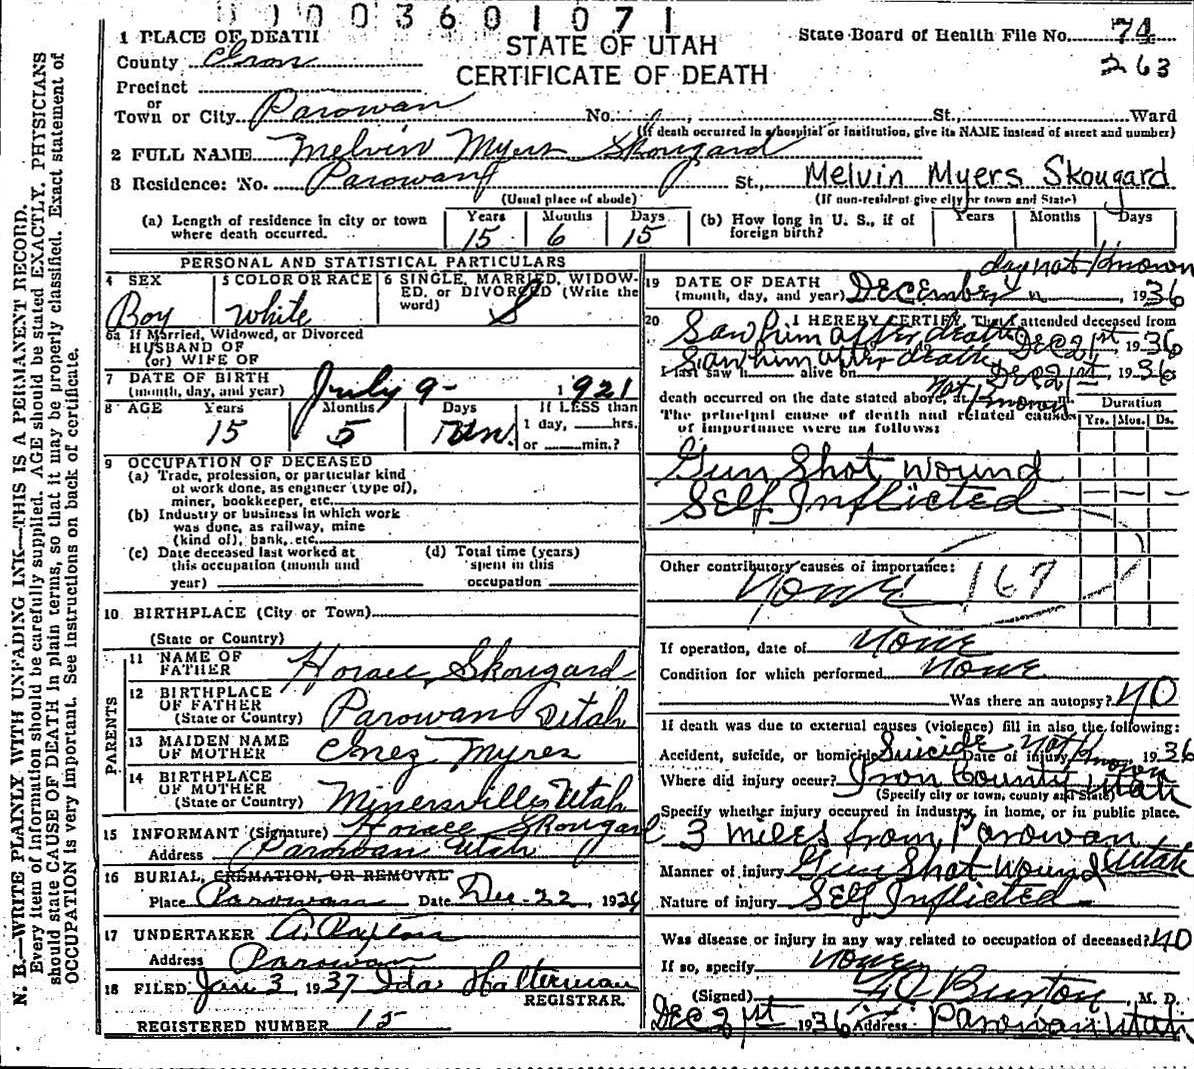 0003601071
1 PLACE OF DEATH
STATE OF UTAH
CERTIFICATE OF DEATH
State Board of Health File No. 74
263
County Iron
Precinct
or
Town or City Parowan No. St., Ward
(If death occurred in a hospital or institution, give its NAME instead of street and number)
2 FULL NAME Melvin Myers Skougard
3 Residence: No. Parowan St., Melvin Myers Skougard
(Usual place of abode) (If non-resident give city or town and State)
(a) Length of residence in city or town where death occurred. Years 15 Months 6 Days 15
(b) How long in U. S., if of foreign birth? Years Months Days
PERSONAL AND STATISTICAL PARTICULARS
4 SEX Boy
5 COLOR OR RACE White
6 SINGLE, MARRIED, WIDOWED, or DIVORCED (Write the word) S
6a If Married, Widowed, or Divorced
HUSBAND OF
(or) WIFE OF
7 DATE OF BIRTH
(month, day, and year) July 9- 1921
8 AGE Years 15 Months 5 Days Un. If LESS than 1 day, hrs. or min.?
9 OCCUPATION OF DECEASED
(a) Trade, profession, or particular kind
of work done, as engineer (type of),
miner, bookkeeper, etc.
(b) Industry or business in which work
was done, as railway, mine
(kind of), bank, etc.
(c) Date deceased last worked at
this occupation (month and
year)
(d) Total time (years)
spent in this
occupation
10 BIRTHPLACE (City or Town)
(State or Country)
PARENTS
11 NAME OF FATHER Horace Skougard
12 BIRTHPLACE OF FATHER
(State or Country) Parowan Utah
13 MAIDEN NAME OF MOTHER Inez Myres
14 BIRTHPLACE OF MOTHER
(State or Country) Minersville Utah
15 INFORMANT (Signature) Horace Skougard
Address Parowan Utah
16 BURIAL, CREMATION, OR REMOVAL
Place Parowan Date Dec-22, 1936
17 UNDERTAKER
Address Parowan
18 FILED Jan 3, 1937 Ida Halterman
REGISTRAR.
REGISTERED NUMBER 15
day not known
19 DATE OF DEATH
(month, day, and year) December 1936
20 I HEREBY CERTIFY, That I attended deceased from
Saw him after death Dec 21st 1936
Saw him after death
I last saw h alive on Dec 21st, 1936
death occurred on the date stated above, at not Known
The principal cause of death and related causes
of importance were as follows:
Duration
Yrs. Mos. Ds.
Gun Shot Wound
Self Inflicted
Other contributory causes of importance:
None 167
If operation, date of None
Condition for which performed None
Was there an autopsy? No
If death was due to external causes (violence) fill in also the following:
Accident, suicide, or homicide Suicide Date of injury Not Known 1936
Where did injury occur? Iron County Utah
(Specify city or town, county and State)
Specify whether injury occurred in industry, in home, or in public place.
3 miles from Parowan Utah
Manner of injury Gun Shot Wound
Nature of injury Self Inflicted
Was disease or injury in any way related to occupation of deceased? No
If so, specify None
(Signed) Burton, M. D.
Dec 21st 1936 Address Parowan Utah
N. B.—WRITE PLAINLY WITH UNFADING INK—THIS IS A PERMANENT RECORD.
Every item of information should be carefully supplied. AGE should be stated EXACTLY. PHYSICIANS
should state CAUSE OF DEATH in plain terms, so that it may be properly classified. Exact statement of
OCCUPATION is very important. See instructions on back of certificate.